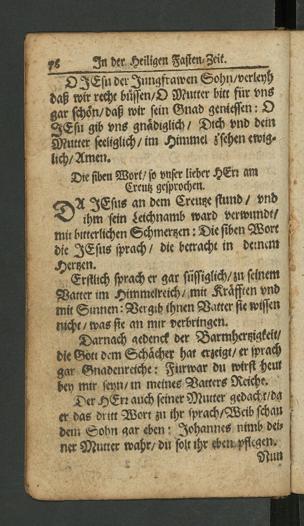 76 In der Heiligen Fasten-Zeit.
O JEsu der Jungfrawen Sohn/verleyh
daß wir recht büssen/O Mutter bitt für vns
gar schön/daß wir sein Gnad geniessen: O
JEsu gib vns gnädiglich/ Dich vnd dein
Mutter seeliglich/ im Himmel zsehen ewig-
lich/Amen.
Die siben Wort/ so vnser lieber HErr am
Creutz gesprochen.
DA JEsus an dem Creutze stund/ vnd
ihm sein Leichnamb ward verwundt/
mit bitterlichen Schmertzen: Die siben Wort
die JEsus sprach/ die betracht in deinem
Hertzen.
Erstlich sprach er gar süssiglich/zu seinem
Vatter im Himmelreich/ mit Kräfften vnd
mit Sinnen: Vergib ihnen Vatter sie wissen
nicht/ was sie an mir verbringen.
Darnach gedenck der Barmhertzigkeit/
die Gott dem Schächer hat erzeigt/ er sprach
gar Gnadenreiche: Fürwar du wirst heut
bey mir seyn/ in meines Vatters Reiche.
Der HErr auch seiner Mutter gedacht/da
er das dritt Wort zu ihr sprach/ Weib schau
dem Sohn gar eben: Johannes nimb dei-
ner Mutter wahr/ du solt ihr eben pflegen.
Nun